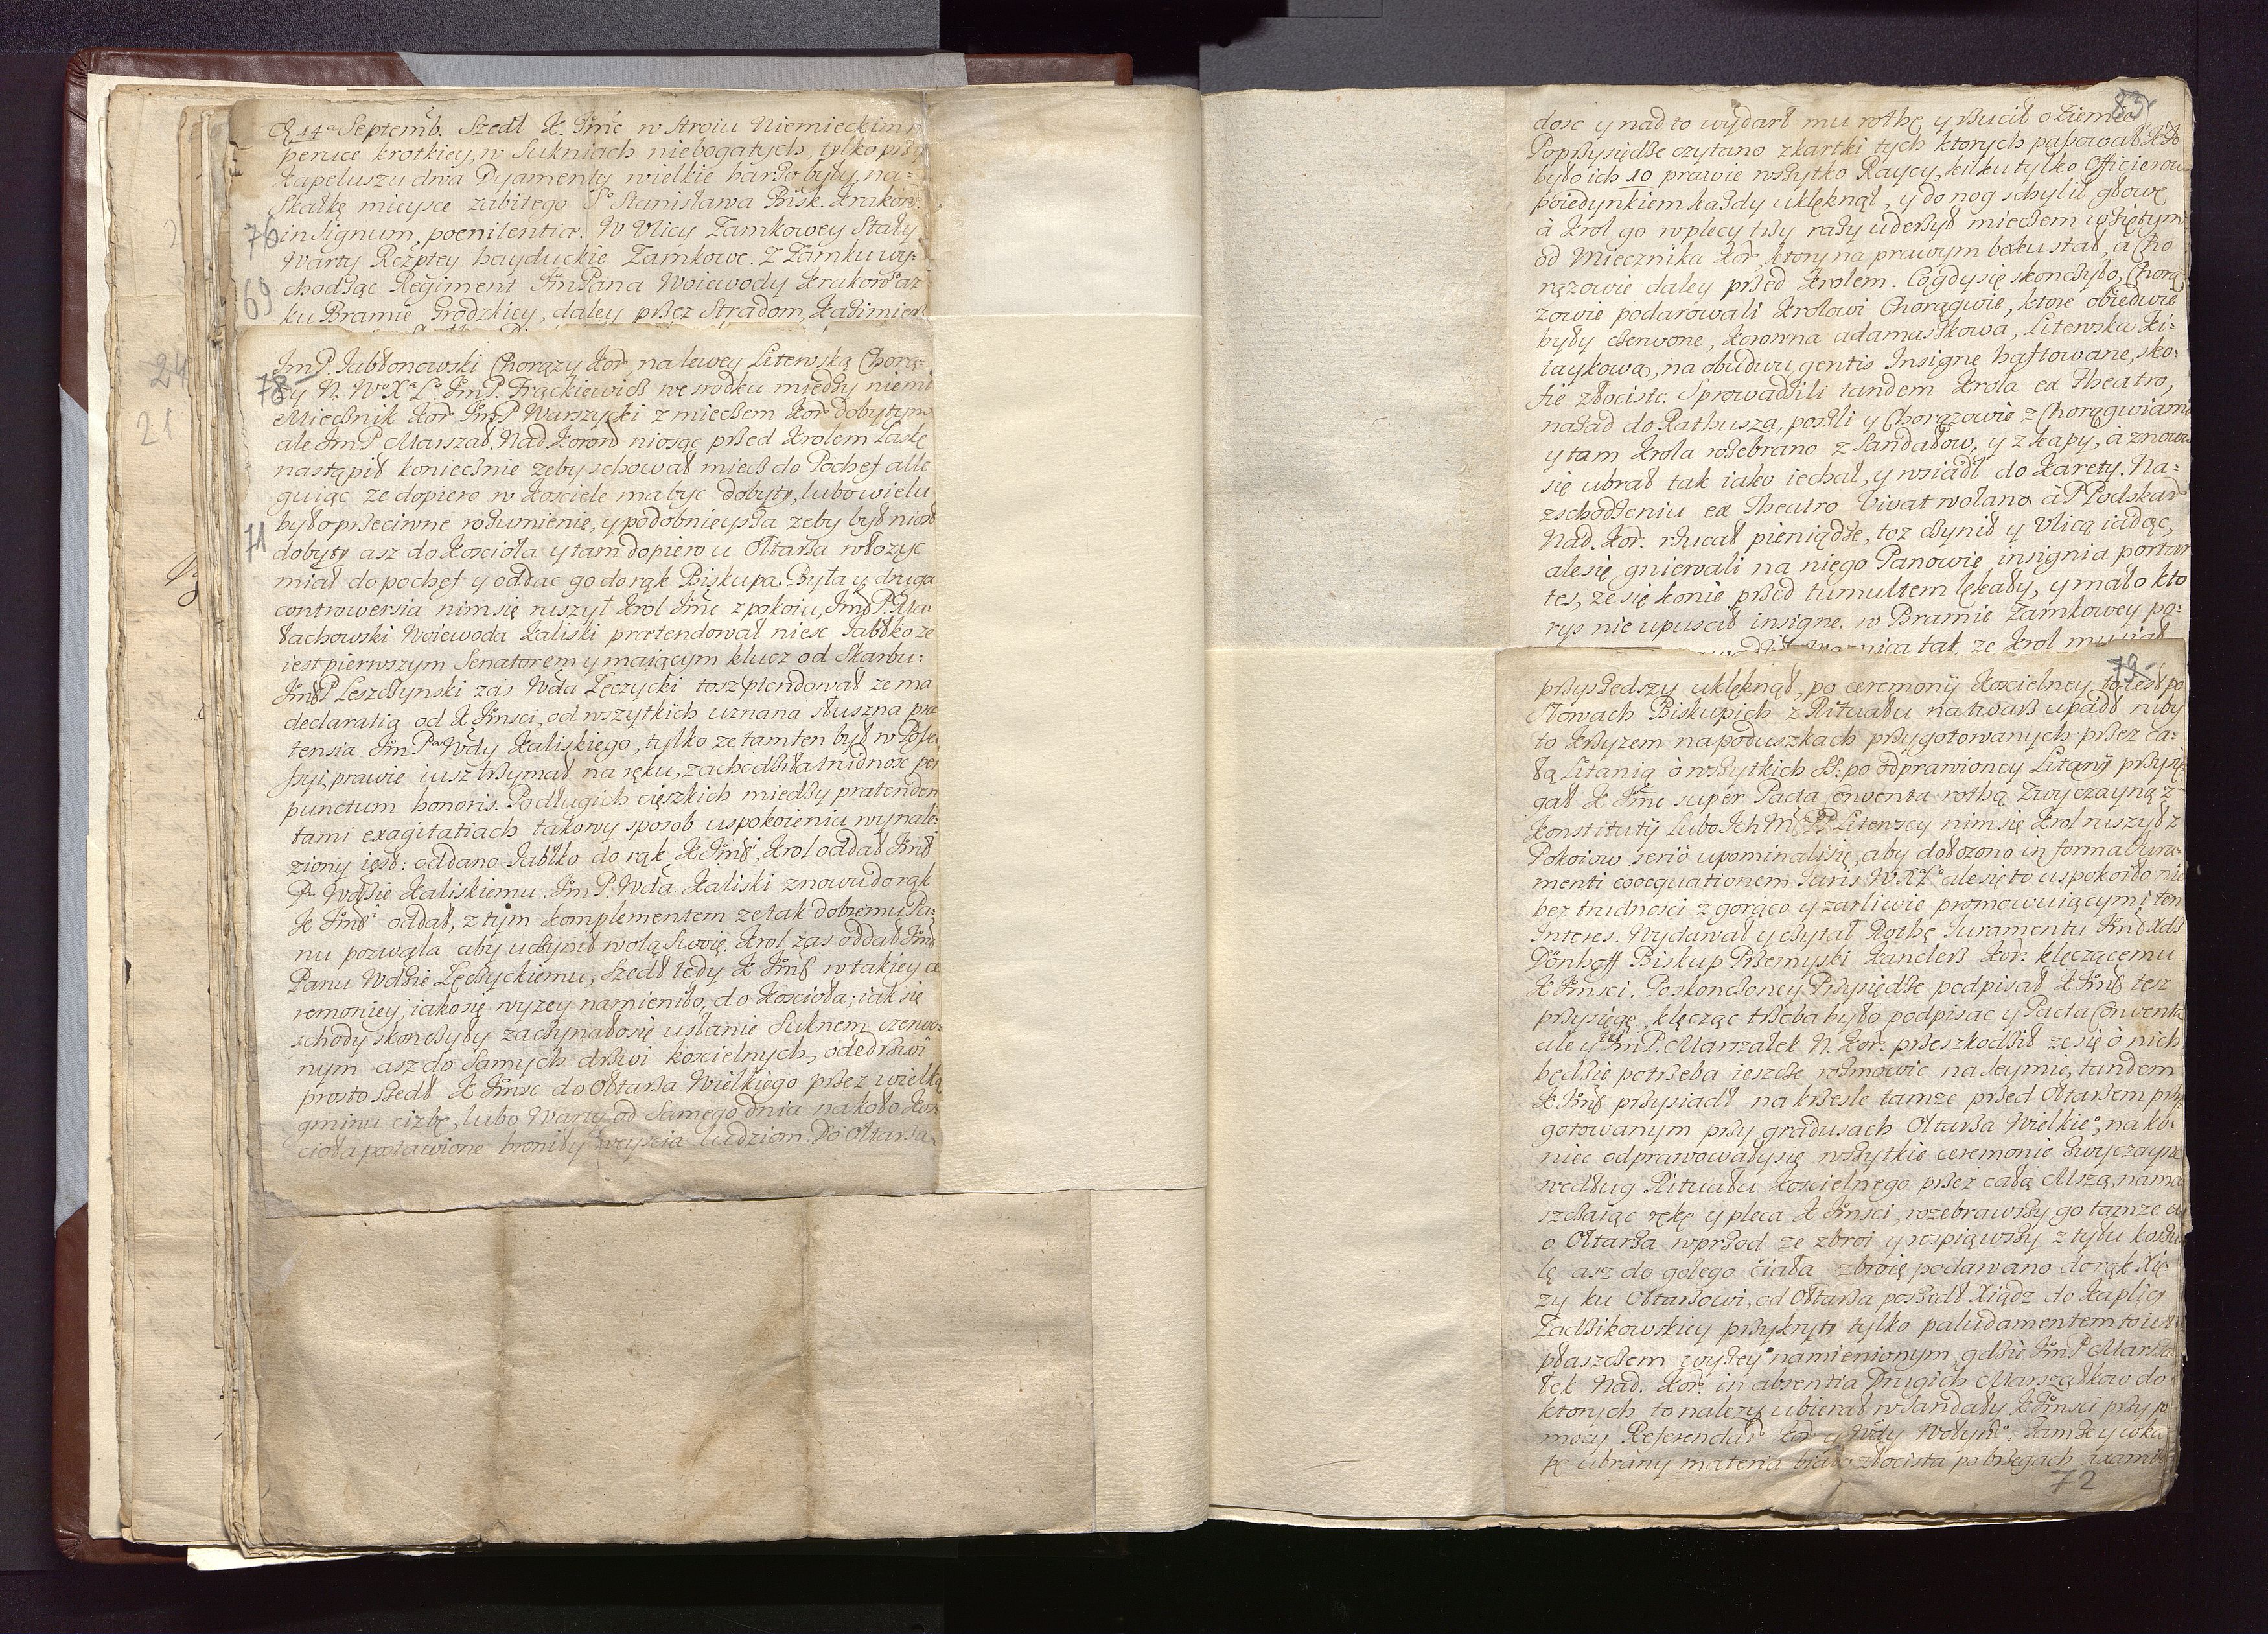 D. 14a Septemb. Szedł K. Jmć w stroiu Niemieckim
peruce krotkiey, w Sukniach niebogatych, tylko przy
Kapeluszu dwa Dyamenty wielkie barzo były, na-
Skałkę mieysce zabitego So Stanisława Bisk. Krakow.
in Signum poenitentiæ. W Vlicy Zamkowey Stały
76
Warty Rczptey hayduckie Zamkowe. Z Zamku wy-
chodząc Regiment JmPana Woiewody Krakowo az
69
ku Bramie Grodzkiey, daley przez Stradom, Kazimierz
JmP. Jabłonowski Chorązy Kor. na lewey Litewską Chorą-
78
zy N. W. X. L. JmP. Frąckiewicz we srodku między niemi
Miecznik Kor. JmP. Warszycki z mieczem Kor. dobytym
ale JmP Marszał. Nad. Koron niosąc przed Krolem Laskę
nastąpił koniecznie zeby schował miecz do Pochef alle
guiąc ze dopiero w Kosciele ma byc dobyty, lubo wielu
było przeciwne rozumienie, y podobnieysza zeby był niosł
71
dobyty asz do Kosciola y tam dopiero u Ołtarza włozyc
miał do pochef y oddac go do rąk Biskupa. Była y druga
controwersia nim się ruszył Krol Jmć z pokoiu, Jmć P. Ma-
łachowski Woiewoda Kaliski prætendował niesc Jabłko ze
iest pierwszym Senatorem y maiącym klucz od Skarbu:
Jmć P Leszczynski zas Wda Łęczycki tosz ptendował ze ma
declaratią od K Jmsci, od wszytkich uznana słuszna præ
tensia JmPa Wdy Kaliskiego, tylko ze tamten był w Posse-
ssyi, prawie iusz trzymał na ręku, zachodziła trudnosc per
punctum honoris. Po długich cięszkich miedzy prætenden
tami exagitatiach takowy sposob uspokoienia wynale-
ziony iest: oddano Jabłko do rąk K Jmści, Krol oddał Jmść
Pu Wdzie Kaliskiemu. Jm P. Wda Kaliski znowu do rąk
K Jmści oddał, z tym komplementem ze tak dobremu Pa-
nu pozwala aby uczynił wolą Swoię. Krol zas oddał Jmść
Panu Wdzie Łęczyckiemu; Szedł tedy K Jmść w takiey ce
remoniey, iako się wyzey namieniło, do Kosciola; iak się
schody skonczyły zaczynało się usłanie Suknem czerwo-
nym asz do Samych drzwi koscielnych, ode drzwi
prosto szedł K Jmsc do Ołtarza Wielkiego przez wielką
gminu cizbę, lubo Warty od Samego dnia nakoło Kos-
cioła postawione broniły weyscia ludziom. Do Ołtarza
83
dosc y nad to wydarł mu rothę y rzucił o Ziemię
Po przysiędze czytano z kartki tych ktorych pasował
było ich 10 prawie wszytko Raycy, kilku tylko Officierow
poiedynkiem kazdy uklęknął, y do nog schylił głowę
a Krol go w plecy trzy razy uderzył mieczem wziętym
od Miecznika Kor. ktory na prawym boku stał, a Cho
rązowie daley przed Krolem. Co gdy się skonczyło, Chorą
zowie podarowali Krolowi Chorągwie, ktore obiedwie
były czerwone, Koronna adamaszkowa, Litewska Ki-
taykowa, na obudwu gentis Insigne haftowane, sko-
fie złociste. Sprowadzili tandem Krola ex Theatro,
nazad do Rathusza, poszli y Chorązowie z Chorągwiami
y tam Krola rozebrano z Sandałow, y z kapy, a znowu
się ubrał tak iako iechał, y wsiadł do Karety. Na-
zschodzeniu ex Theatro Vivat wołano à P Podskar
Nad. Kor. rzucał pieniądze, toz czynił y Vlicą iadąc,
ale się gniewali na niego Panowie insignia portan
tes, ze się konie przed tumultem lękały, y mało kto
rys nie upuscił insigne. w Bramie Zamkowey po-
woznica tak, ze Krol musiał
79
przyszedszy uklęknął, po ceremonij Koscielney to iest po
słowach Biskupich z Rituału na twarz upadł niby
to krzyzem na poduszkach przygotowanych przez ca-
łą Litanią o wszytkich SS: po odprawioney Litanij przysię
gał K Jmć super Pacta Conventa rothą Zwyczayną z
Konstitutij Lubo Ich Mć PP Litewscy nim się Krol ruszył z
Pokoiow serio upominali się, aby dołozono in forma Jura-
menti coæquationem Juris W. X. Lo ale się to uspokoiło nie
bez trudnosci z gorąco y zarliwie promowuiącymi ten
Interes. Wydawał y czytał Rothę Juramentu Jmć Xdz
Dönhoff Biskup Przemyski Kanclerz Kor. klęczącemu
K Jmsci. Po skonczoney Przysiędze podpisał K Jmść tesz
przysięgę, klęcząc trzeba było podpisac y Pacta Conventa
ale y JmP. Marszałek N. Kor. przeszkodził ze się o nich
będzie potrzeba ieszcze rozmowic na Seymie, tandem
K Jmść przysiadł na krzesle tamze przed Ołtarzem przy-
gotowanym przy gradusach Ołtarza Wielkieo, na ko-
niec odprawowały się wszytkie ceremonie Zwyczayne
według Rituału Koscielnego przez całą Mszą, nama
szczaiąc rękę y pleca K Jmsci, rozebrawszy go tamze
o Ołtarza wprzod ze zbroi y rospiąwszy z tyłu koszu
lę asz do gołego ciała zbroię podawano do rąk Xię-
zy ku Ołtarzowi, od Ołtarza poszedł Xiądz do Kaplicy
Zadzikowskiey przykryty tylko paludamentem to iest
płaszczem wyzey namienionym gdzie JmP Marsza
łek Nad. Kor. in absentia Drugich Marszałkow do
ktorych to nalezy, ubierał w Sandały K Jmsci przy po
mocy Referendar Kor y Wdy Wołyńo. Tamze y w
kę ubrany materia biało złocista po brzegach
72